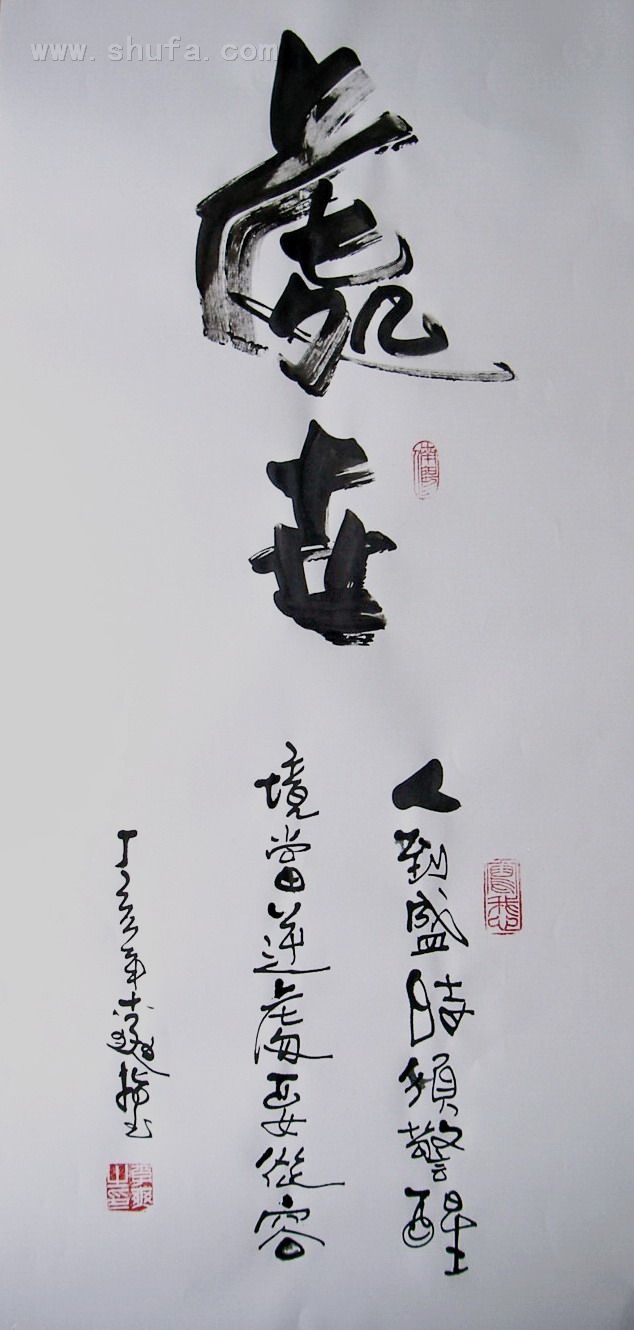 www.shufa.com
處世
人到盛時須警醒
境當逆處要從容
丁亥年